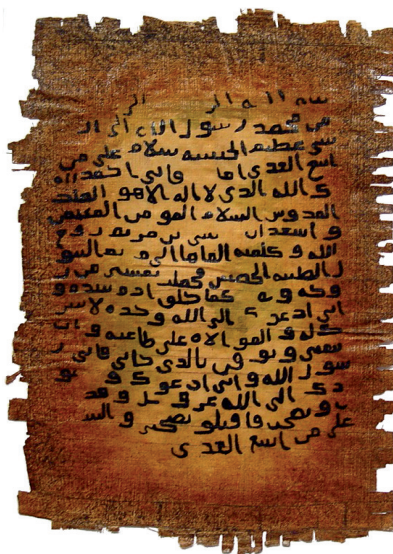 من محمد رسول الله الى ال
شي عظيم الحبشه سلام على من
اتبع الهدى اما فاني احمد
ك الله الذي لا اله الا هو الملك
القدوس السلام المومن المهيمن
و اشهد ان سى بن مريم روح
الله و كلمته القاها الى مريم البتو
ل الطيبه الحصينه فحملت بعيسى من ر
وحه و كما خلق ادم بيده و
اني ادعوك الى الله وحده لا شر
يك له و الموالاه على طاعته و ان
تتبعني و توقن بالذي جاني فاني ر
سول الله و اني ادعوك و
دك الى الله عز و جل و قد
و نصحت فاقبلو نصحي و السلا
على من اتبع الهدى